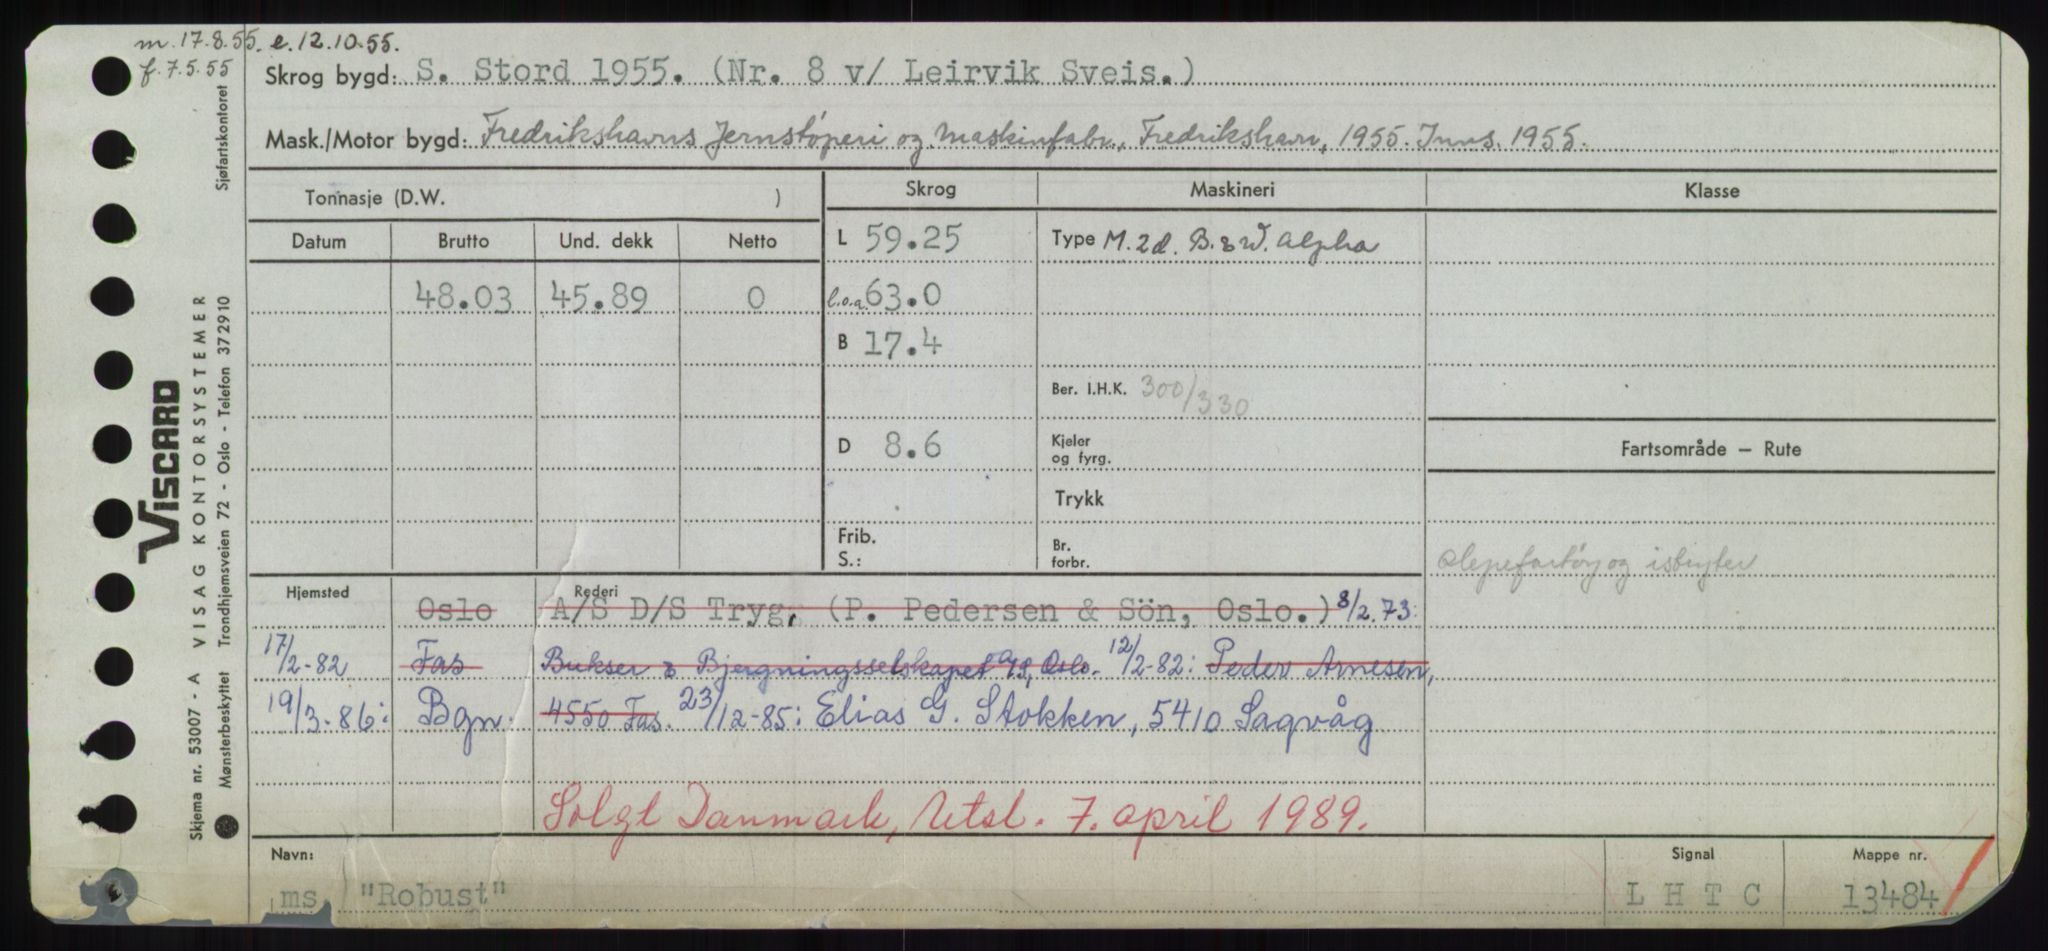 m. 17.8.55. e. 12.10.55.
f. 7.5.55
Skrog bygd: S. Stord 1955. (Nr. 8 v/ Leirvik Sveis.)
Mask./Motor bygd: Fredrikshavns Jernstøperi og Maskinfabr., Fredrikshavn, 1955. Inns. 1955.
Tonnasje (D.W. )
Skrog
Maskineri
Klasse
Datum Brutto Und. dekk Netto
L 59.25
Type M. 2d. B. & W. Alpha
48.03 45.89 0
l.o.a. 63.0
B 17.4
Ber. I.H.K. 300/330
D 8.6
Kjeler
og fyrg.
Fartsområde – Rute
Trykk
Frib.
S.:
Br.
forbr.
Slepefartøy og isbryter
Hjemsted
Rederi
Oslo A/S D/S Tryg, (P. Pedersen & Sön, Oslo.) 8/2.73:
17/2-82 Fas Bukser & Bjergningsselskapet A/S, Oslo. 12/2-82: Peder Arnesen,
19/3-86: Bgn. 4550 Fas. 23/12-85: Elias G. Stokken, 5410 Sagvåg
Solgt Danmark, Utsl. 7. april 1989.
Navn:
Signal
Mappe nr.
ms "Robust"
L H T C
13484
Skjema nr. 53007 - A VISAG KONTORSYSTEMER
Mønsterbeskyttet Trondhjemsveien 72 - Oslo - Telefon 372910
Sjøfartskontoret
VISCARD